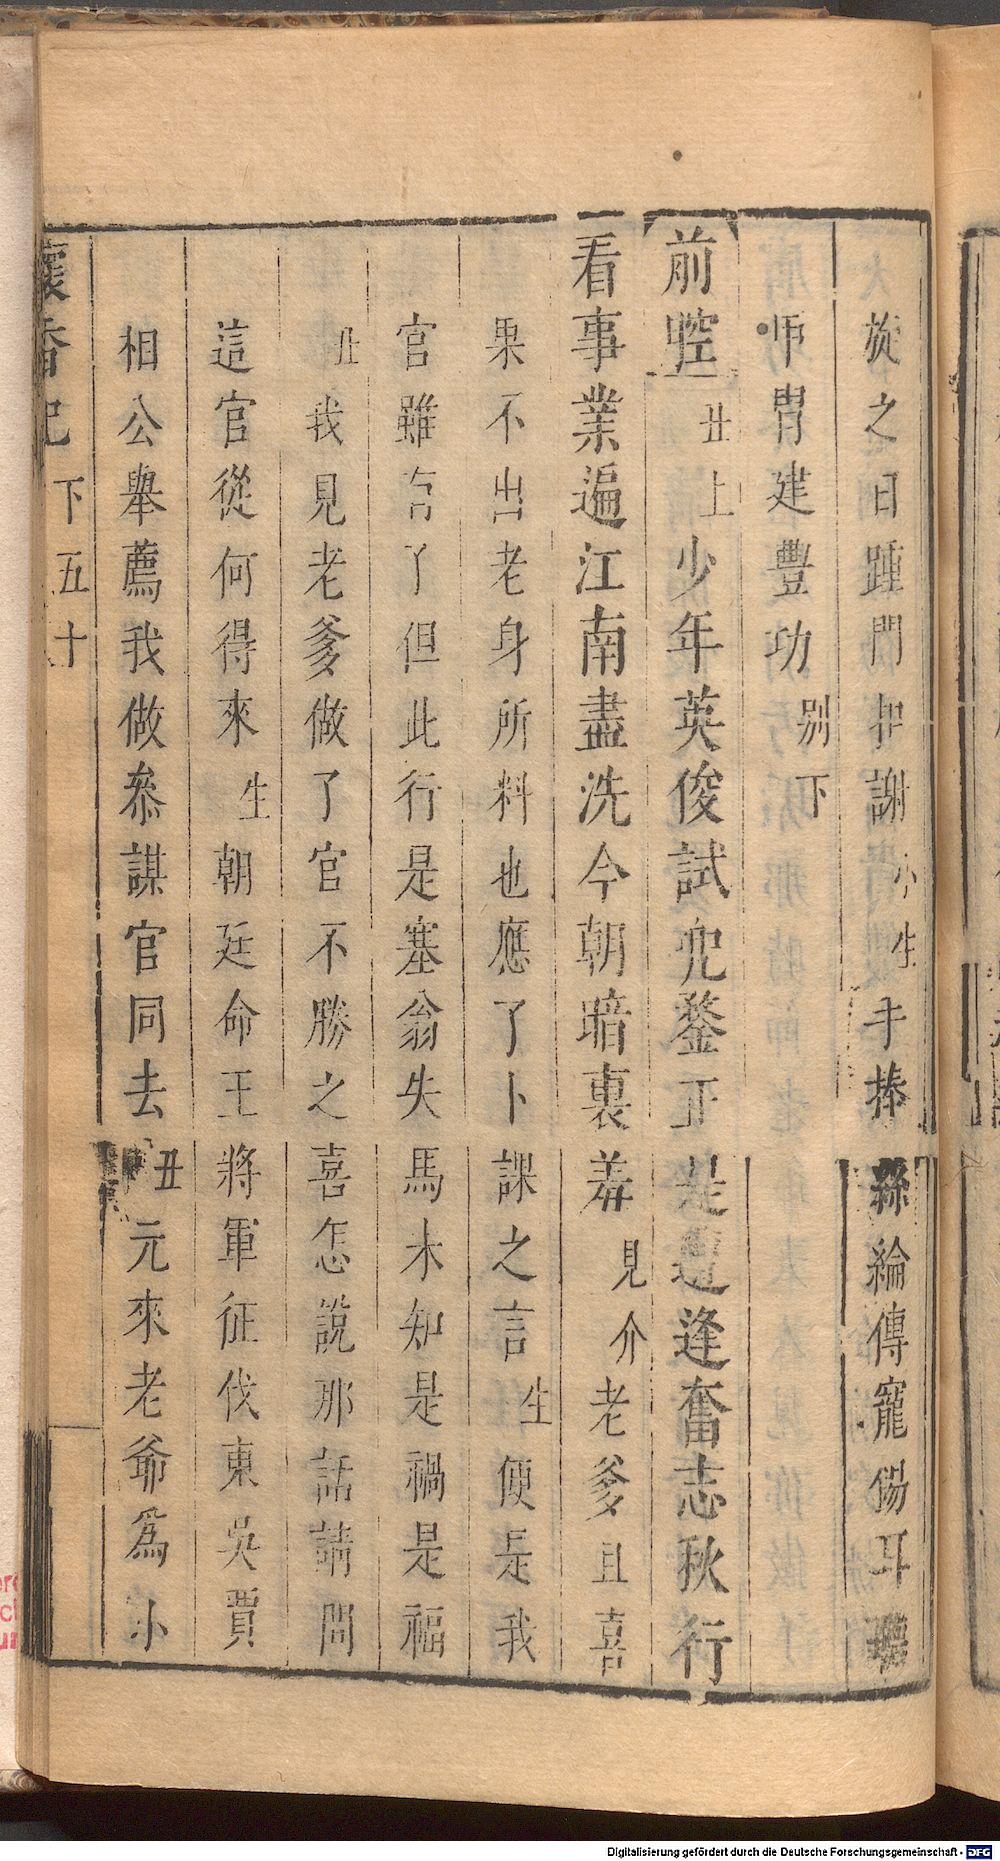 旋之日踵門拜謝小生手捧絲綸傳寵錫耳聽
帥胄建豐功別下
前腔丑上少年英俊試兜鍪正是遭逢奮志秋行
看事業遍江南盡洗今朝暗裏羞見介老爹且喜
果不出老身所料也應了卜課之言生便是我
官雖官了但此行是塞翁失馬未知是禍是福
丑我見老爹做了官不勝之喜怎說那話請問
這官從何得來生朝廷命王將軍征伐東吳賈
相公舉薦我做叅謀官同去丑元來老爺爲小
懷香記 下五十
Digitalisierung gefördert durch die Deutsche Forschungsgemeinschaft - DFG